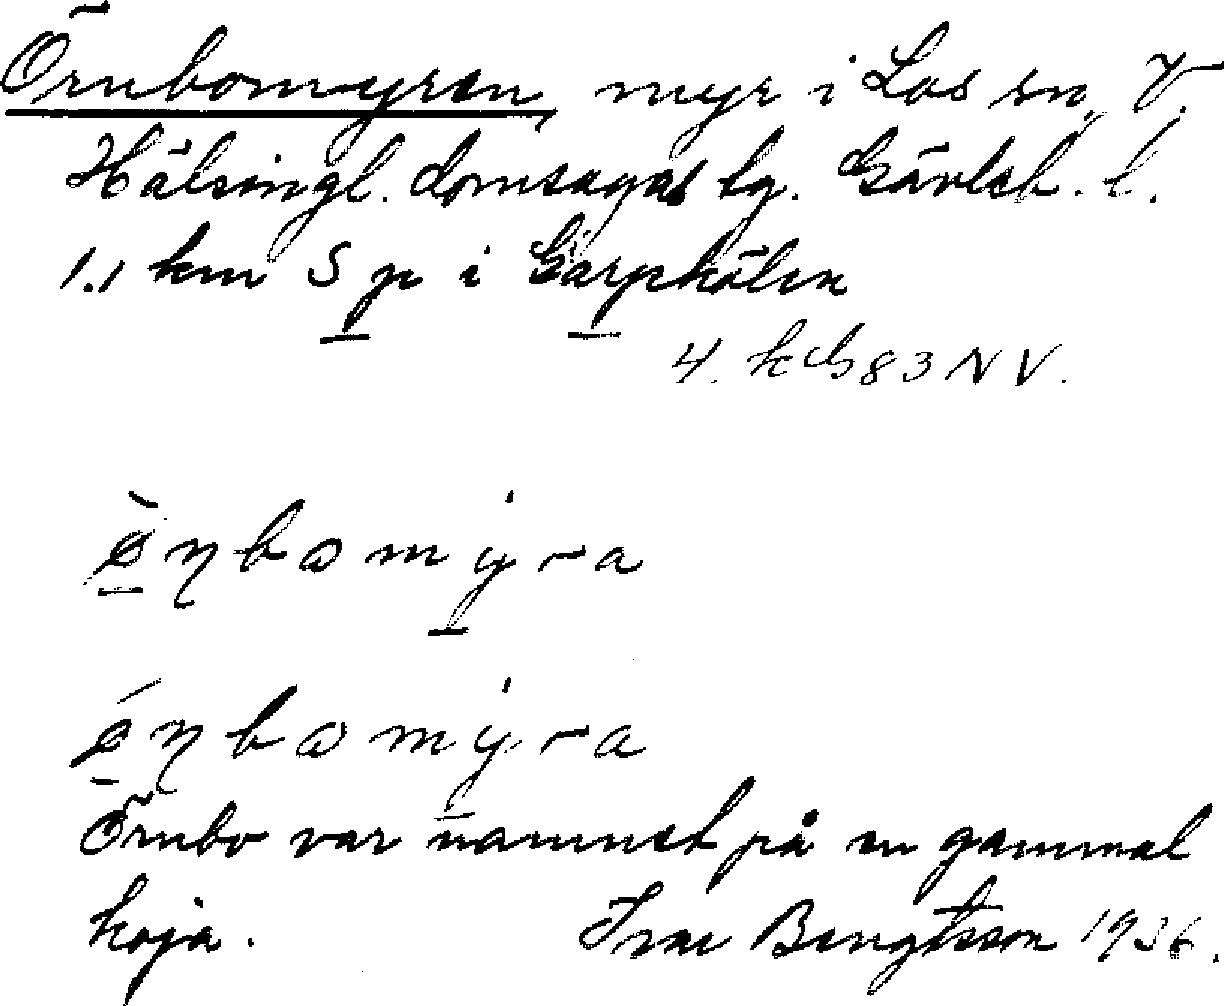 Örnbomyren, myr i Los sn, V.
Hälsingl. domsagas tg. Gävleb. l.
1.1 km S p i Garpkölen
4. kcb 83 NV.
ø̀ɳbɷmyra
ǿɳbɷmyra
Örnbo var namnet på en gammal
koja. Ivar Bengtsson 1936.